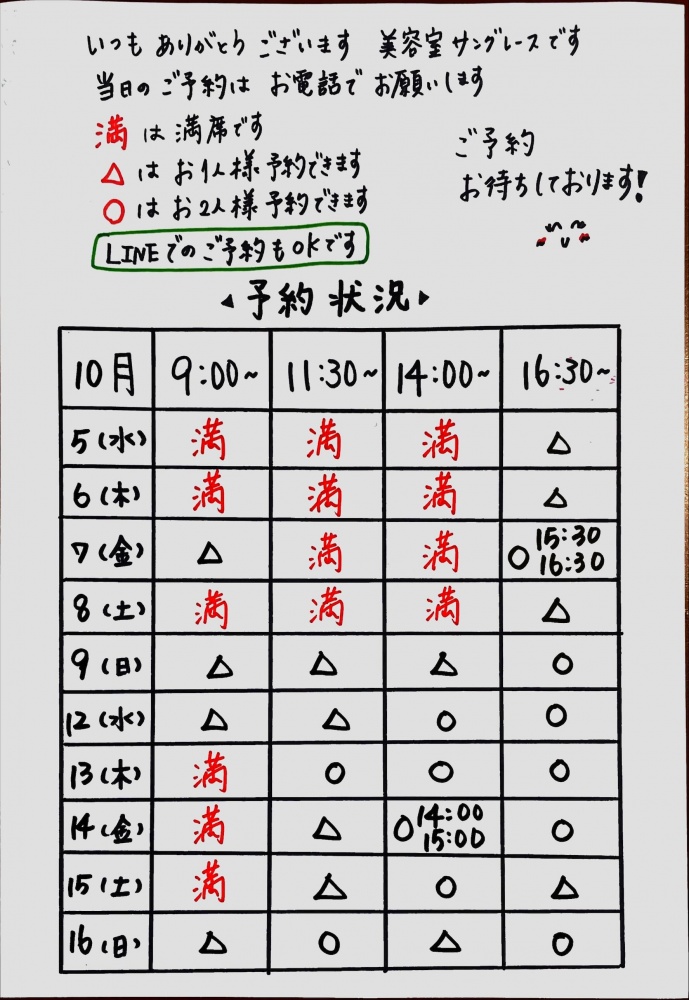 いつも ありがとう ございます 美容室サングレースです
当日の ご予約は お電話で お願いします
満 は 満席です
△ は お1人様 予約できます
○ は お2人様 予約できます
LINEでの ご予約も OKです
ご予約
お待ちしております!
◂ 予約 状況 ▸
10月 9:00~ 11:30~ 14:00~ 16:30~
5(水) 満 満 満 △
6(木) 満 満 満 △
7(金) △ 満 満 ○ 15:30 16:30
8(土) 満 満 満 △
9(日) △ △ △ ○
12(水) △ △ ○ ○
13(木) 満 ○ ○ ○
14(金) 満 △ ○ 14:00 15:00 ○
15(土) 満 △ ○ △
16(日) △ ○ △ ○